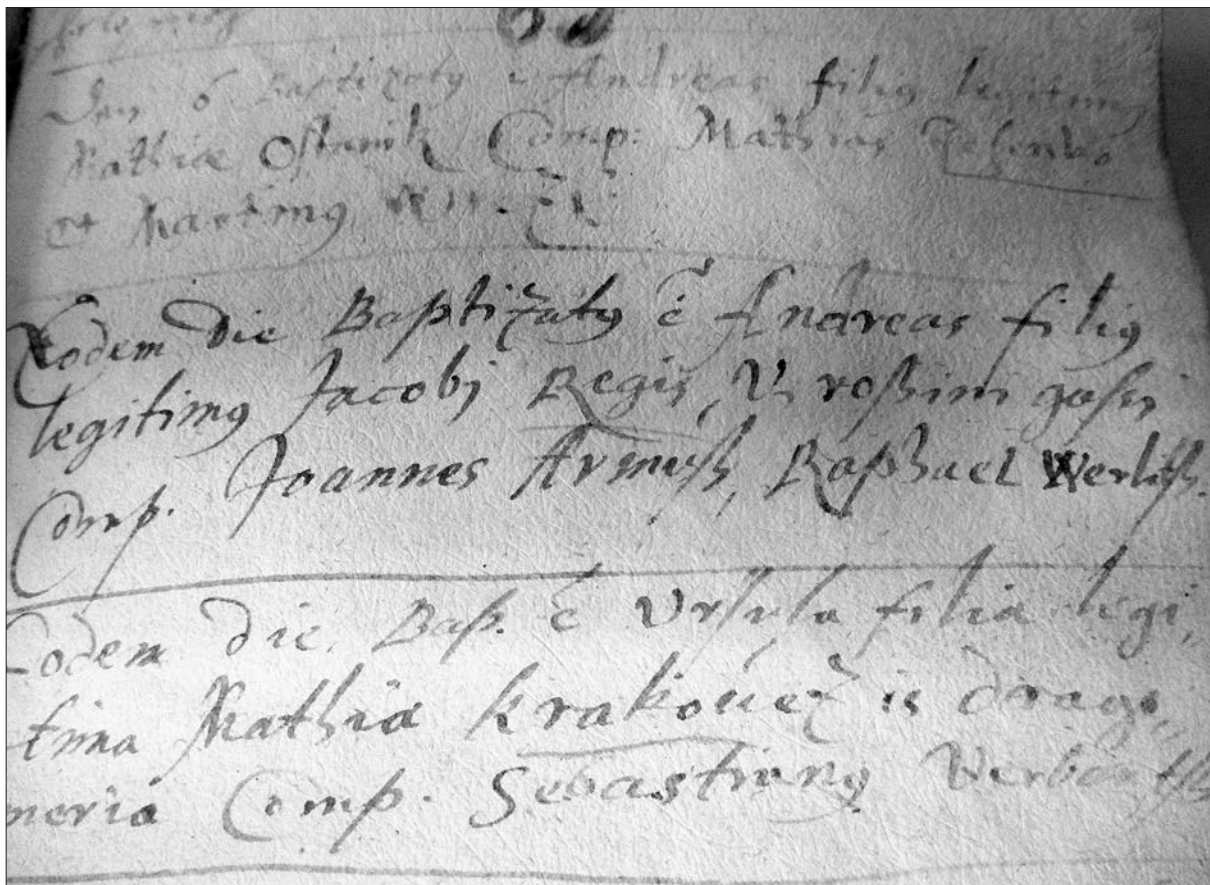 Den 6 Baptizatus ē Andreas filius legitimus
Mathiæ Ostanik Comp: Mathias
et Martinus
Eodem Die Baptizatus ē Andreas filius
legitimus Jacobj Regis, V roßini gaßi
Comp. Joannes Armiſh, Raphael Werliſh.
Eodem die Bap. ē Vrſula filia legi,,
tima Mathiæ Krakouez is drago,,
meria Comp. Sebastianus